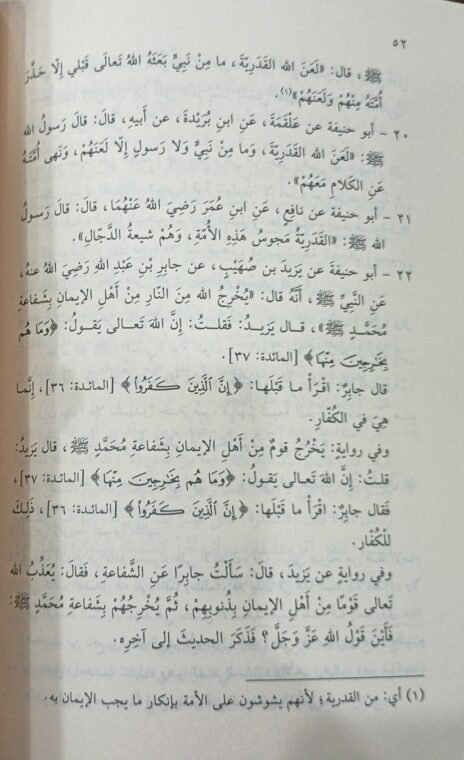 ٥٢
ﷺ، قال: «لَعَنَ الله القَدَرِيَّةَ، ما مِنْ نَبِيٍّ بَعَثَهُ اللهُ تَعَالى قَبْلي إِلَّا حَذَّرَ
أُمَّتَهُ مِنْهُمْ وَلَعَنَهُمْ»(١).
٢٠ - أبو حنيفة عن عَلْقَمَةَ، عَنِ ابنِ بُرَيْدَةَ، عن أَبيهِ، قالَ: قالَ رَسولُ الله
ﷺ: «لَعَنَ الله القَدَرِيَّةَ، وَما مِنْ نَبِيٍّ وَلا رَسولٍ إِلَّا لَعَنَهُمْ، وَنَهى أُمَّتَهُ
عَنِ الكَلامِ مَعَهُمْ».
٢١ - أبو حنيفة عن نافِعٍ، عَنِ ابنِ عُمَرَ رَضِيَ اللهُ عَنْهُمَا، قالَ: قالَ رَسولُ
الله ﷺ: «القَدَرِيَّةُ مَجوسُ هَذِهِ الأُمَّةِ، وَهُمْ شيعَةُ الدَّجَّالِ».
٢٢ - أبو حنيفة عَن يَزيدَ بن صُهَيْبٍ، عن جابِرِ بْنِ عَبْدِ اللهِ رَضِيَ اللهُ عنهُ،
عَنِ النَّبِيِّ ﷺ، أَنَّهُ قال: «يُخْرِجُ الله مِنَ النّارِ مِنْ أَهْلِ الإيمانِ بِشَفاعَةِ
مُحَمَّدٍ ﷺ»، قـال يَزيدُ: فَقلتُ: إِنَّ اللهَ تَعالى يَقولُ: ﴿وَمَا هُم
بِخَارِجِينَ مِنْهَا﴾ [المائدة: ٣٧].
قال جابِرٌ: اقْرَأْ ما قَبْلَها: ﴿إِنَّ الَّذِينَ كَفَرُوا﴾ [المائدة: ٣٦]، إِنَّما
هِيَ في الكُفّارِ.
وفي روايةٍ: يَخْرُجُ قومٌ مِنْ أَهْلِ الإيمانِ بِشَفاعَةِ مُحَمَّدٍ ﷺ، قال يَزيدُ:
قلتُ: إِنَّ اللهَ تَعالى يَقولُ: ﴿وَمَا هُم بِخَارِجِينَ مِنْهَا﴾ [المائدة: ٣٧]،
فَقال جابِرٌ: اقْرَأْ ما قَبْلَها: ﴿إِنَّ الَّذِينَ كَفَرُوا﴾ [المائدة: ٣٦]، ذَلِكَ
لِلْكُفّارِ.
وفي روايةٍ عن يَزيدَ، قالَ: سَأَلْتُ جابِرًا عَنِ الشَّفاعَةِ، فَقالَ: يُعَذِّبُ الله
تَعالى قَوْمًا مِنْ أَهْلِ الإيمانِ بِذُنوبِهِمْ، ثُمَّ يُخْرِجُهُمْ بِشَفاعَةِ مُحَمَّدٍ ﷺ:
فَأَيْنَ قَوْلُ الله عَزَّ وَجَلَّ؟ فَذَكَرَ الحديثَ إِلى آخِرِهِ.
(١) أي: من القدرية؛ لأنهم يشوشون على الأمة بإنكار ما يجب الإيمان به.